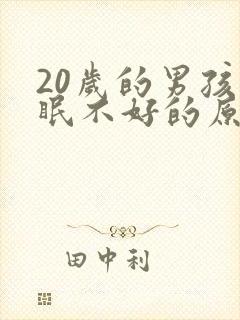 20歲的男孩
眠不好的原
田中利